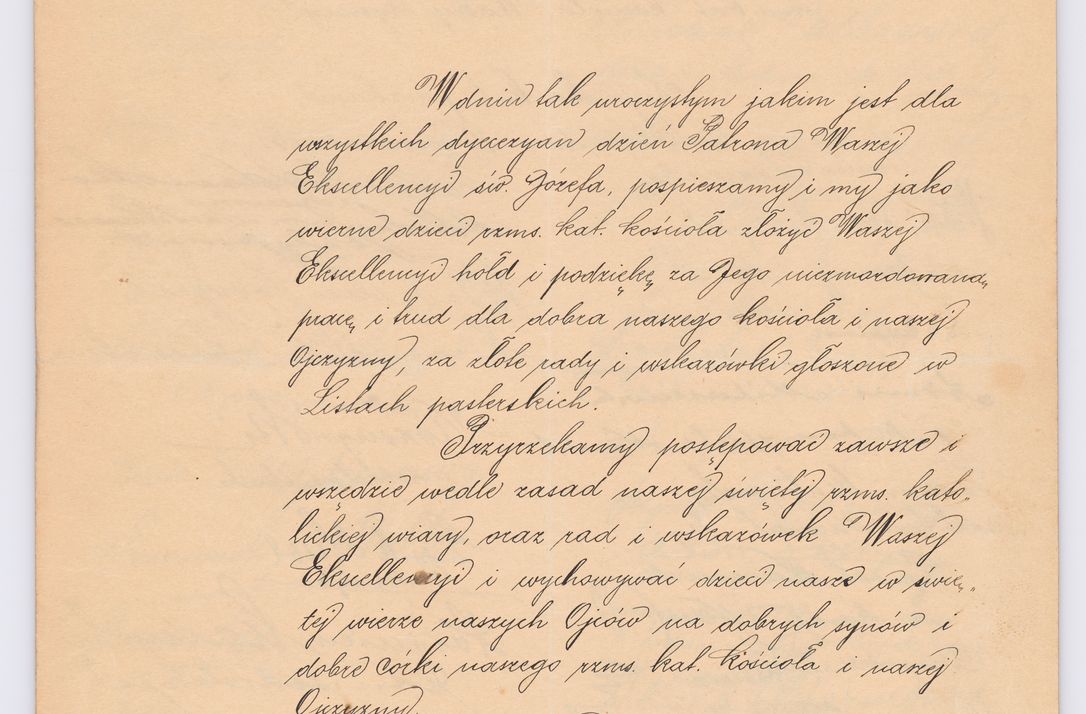 W dniu tak uroczystym jakim jest dla
wszystkich dyecezyan dzień Patrona Waszej
Ekscellencyi św. Józefa, pospieszamy i my jako
wierne dzieci rzms. kat. kościoła złożyć Waszej
Ekscellencyi hołd i podziękę za Jego niezmordowaną
pracę i trud dla dobra naszego kościoła i naszej
Ojczyzny, za złote rady i wskazówki głoszone w
Listach pasterskich.
Przyrzekamy postępować zawsze i
wszędzie wedle zasad naszej świętej rzms. kato-
lickiej wiary, oraz rad i wskazówek Waszej
Ekscellencyi i wychowywać dzieci nasze w świę-
tej wierze naszych Ojców na dobrych synów i
dobre córki naszego rzms. kat. kościoła i naszej
Ojczyzny.